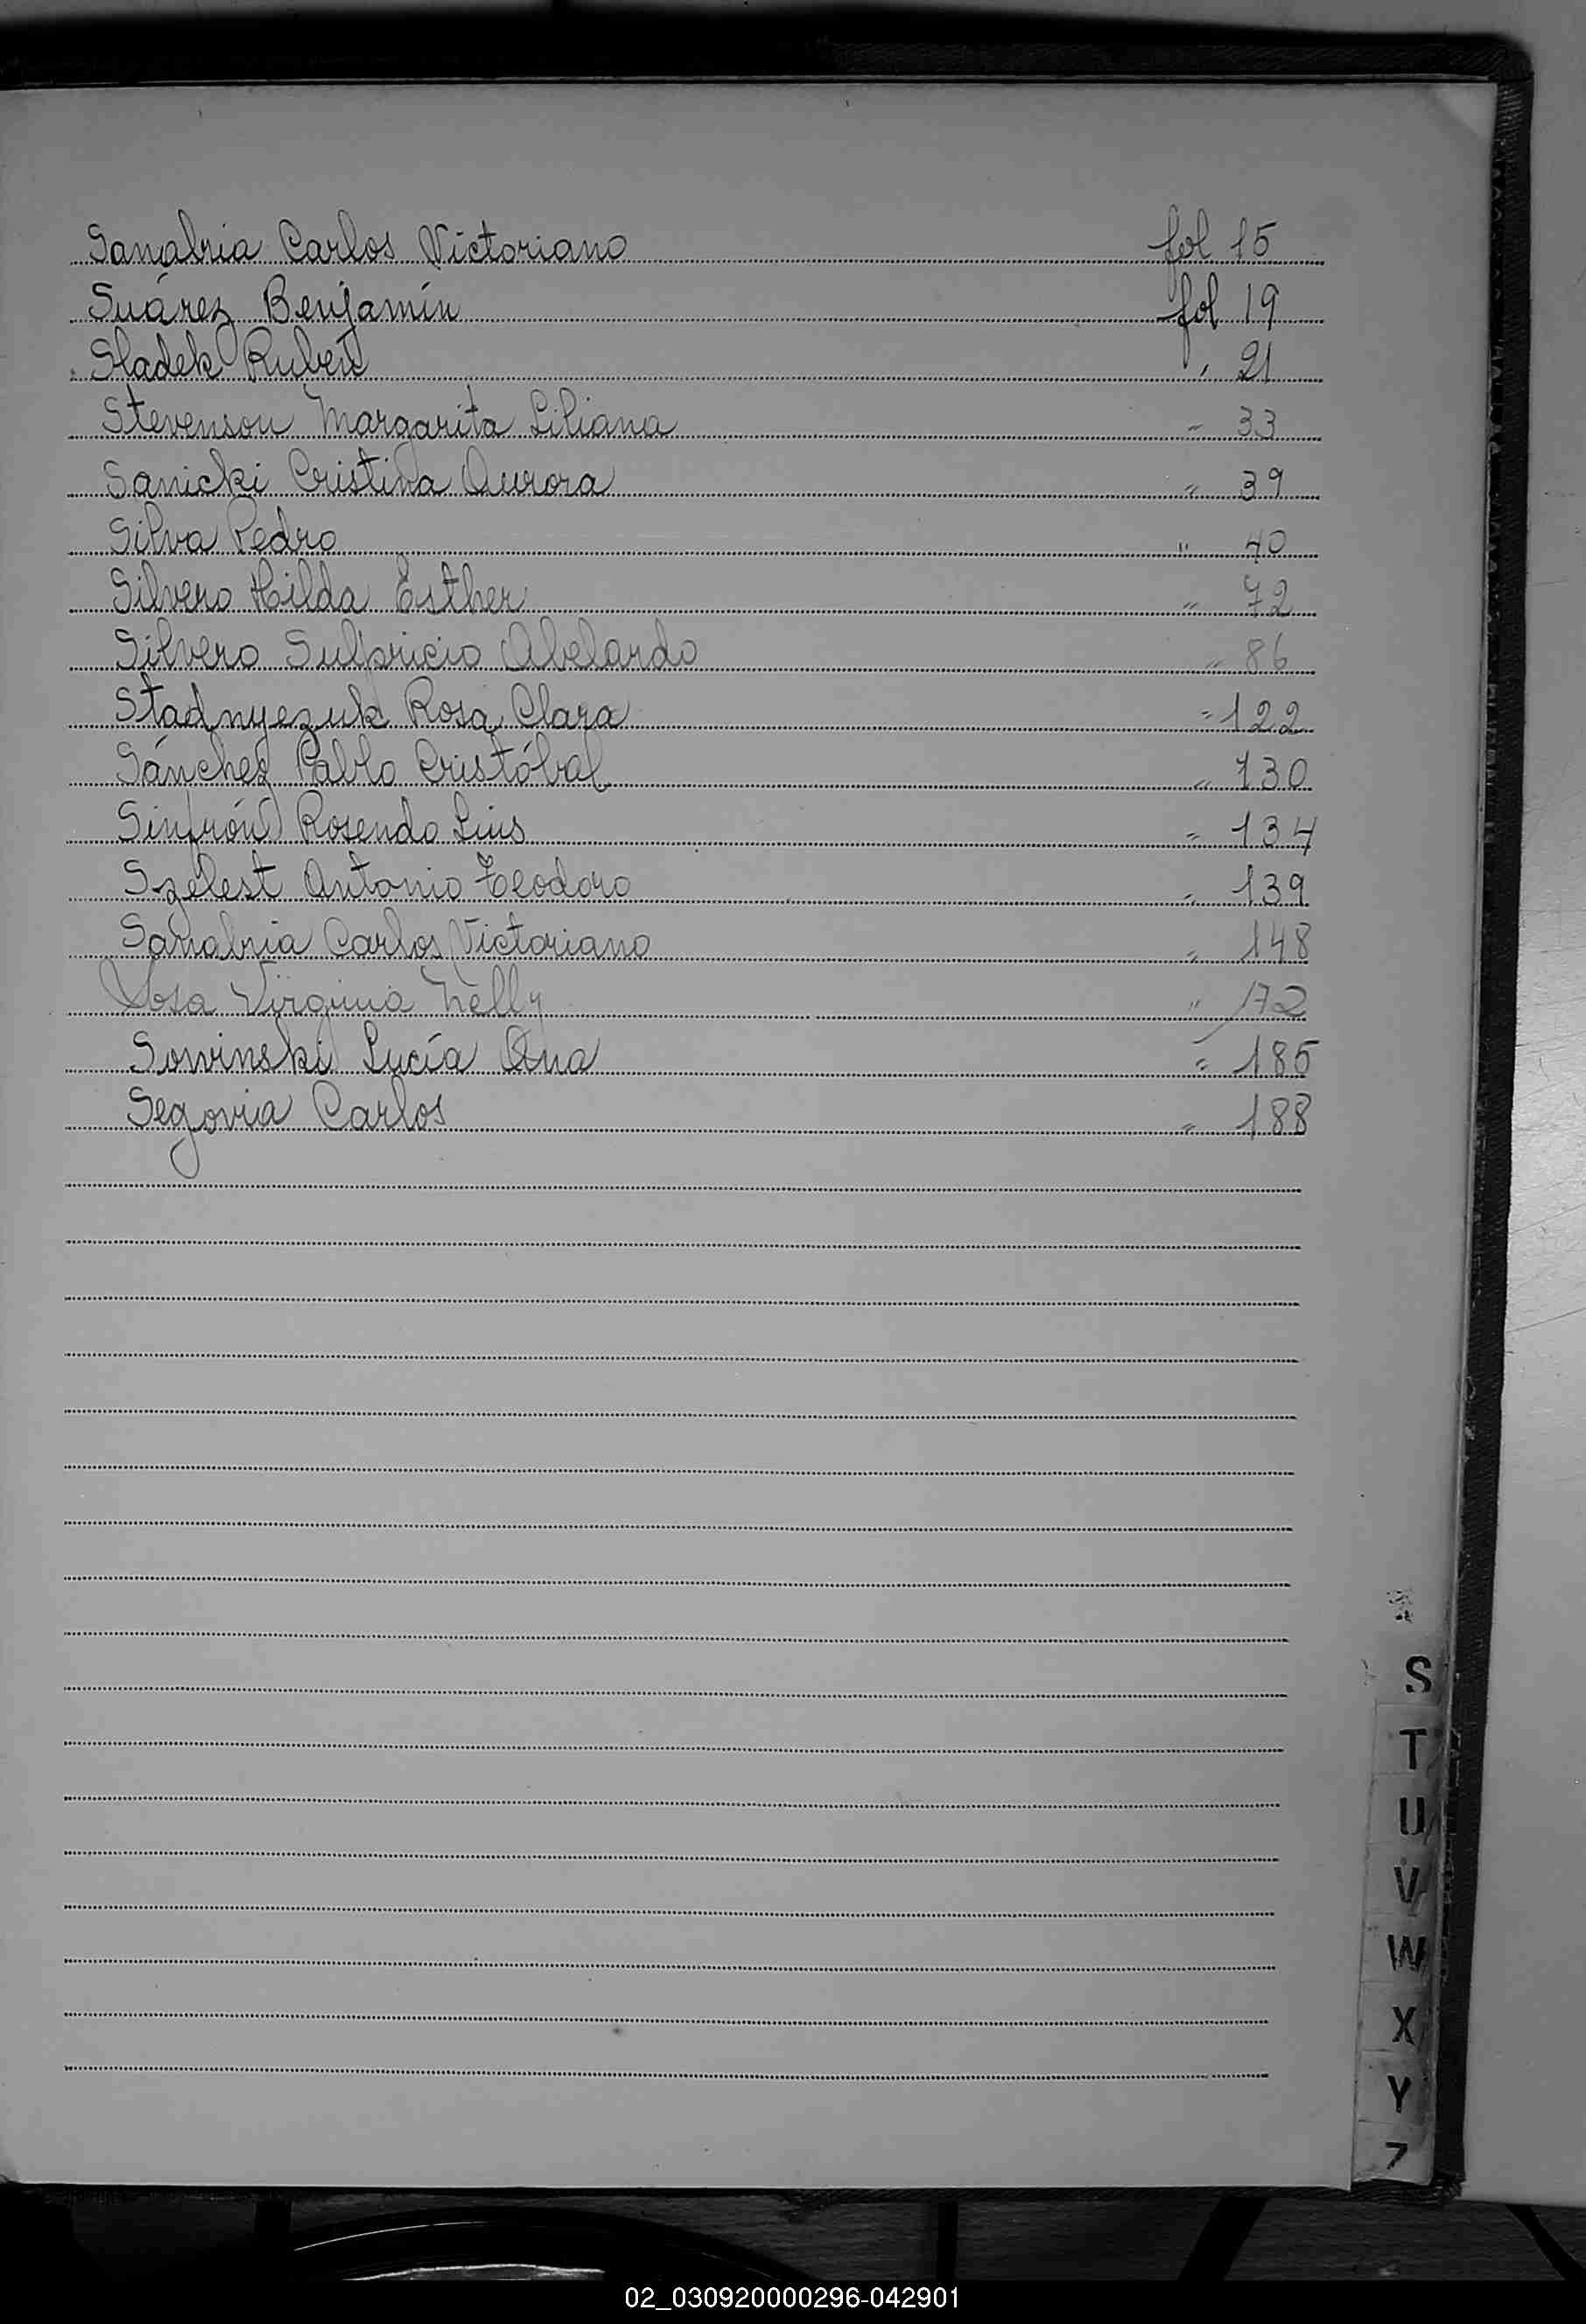 Sanabria Carlos Victoriano fol 15
Suárez Benjamín fol 19
Sladek Rubén " 21
Stevenson Margarita Liliana " 33
Sanicki Cristina Aurora " 39
Silva Pedro " 40
Silvero Hilda Esther " 72
Silvero Sulpricio Abelardo " 86
Stadnyezuk Rosa Clara " 122
Sánchez Pablo Cristóbal " 130
Sinfrón Rosendo Luis " 134
Szelest Antonio Teodoro " 139
Sanabria Carlos Victoriano " 148
Sosa Virginia Nelly " 172
Sowinski Lucía Ana " 185
Segovia Carlos " 188
S
T
U
V
W
X
Y
Z
02_030920000296-042901